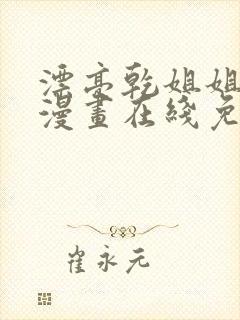 漂亮乾姐姐
漫畫在綫免
崔永元